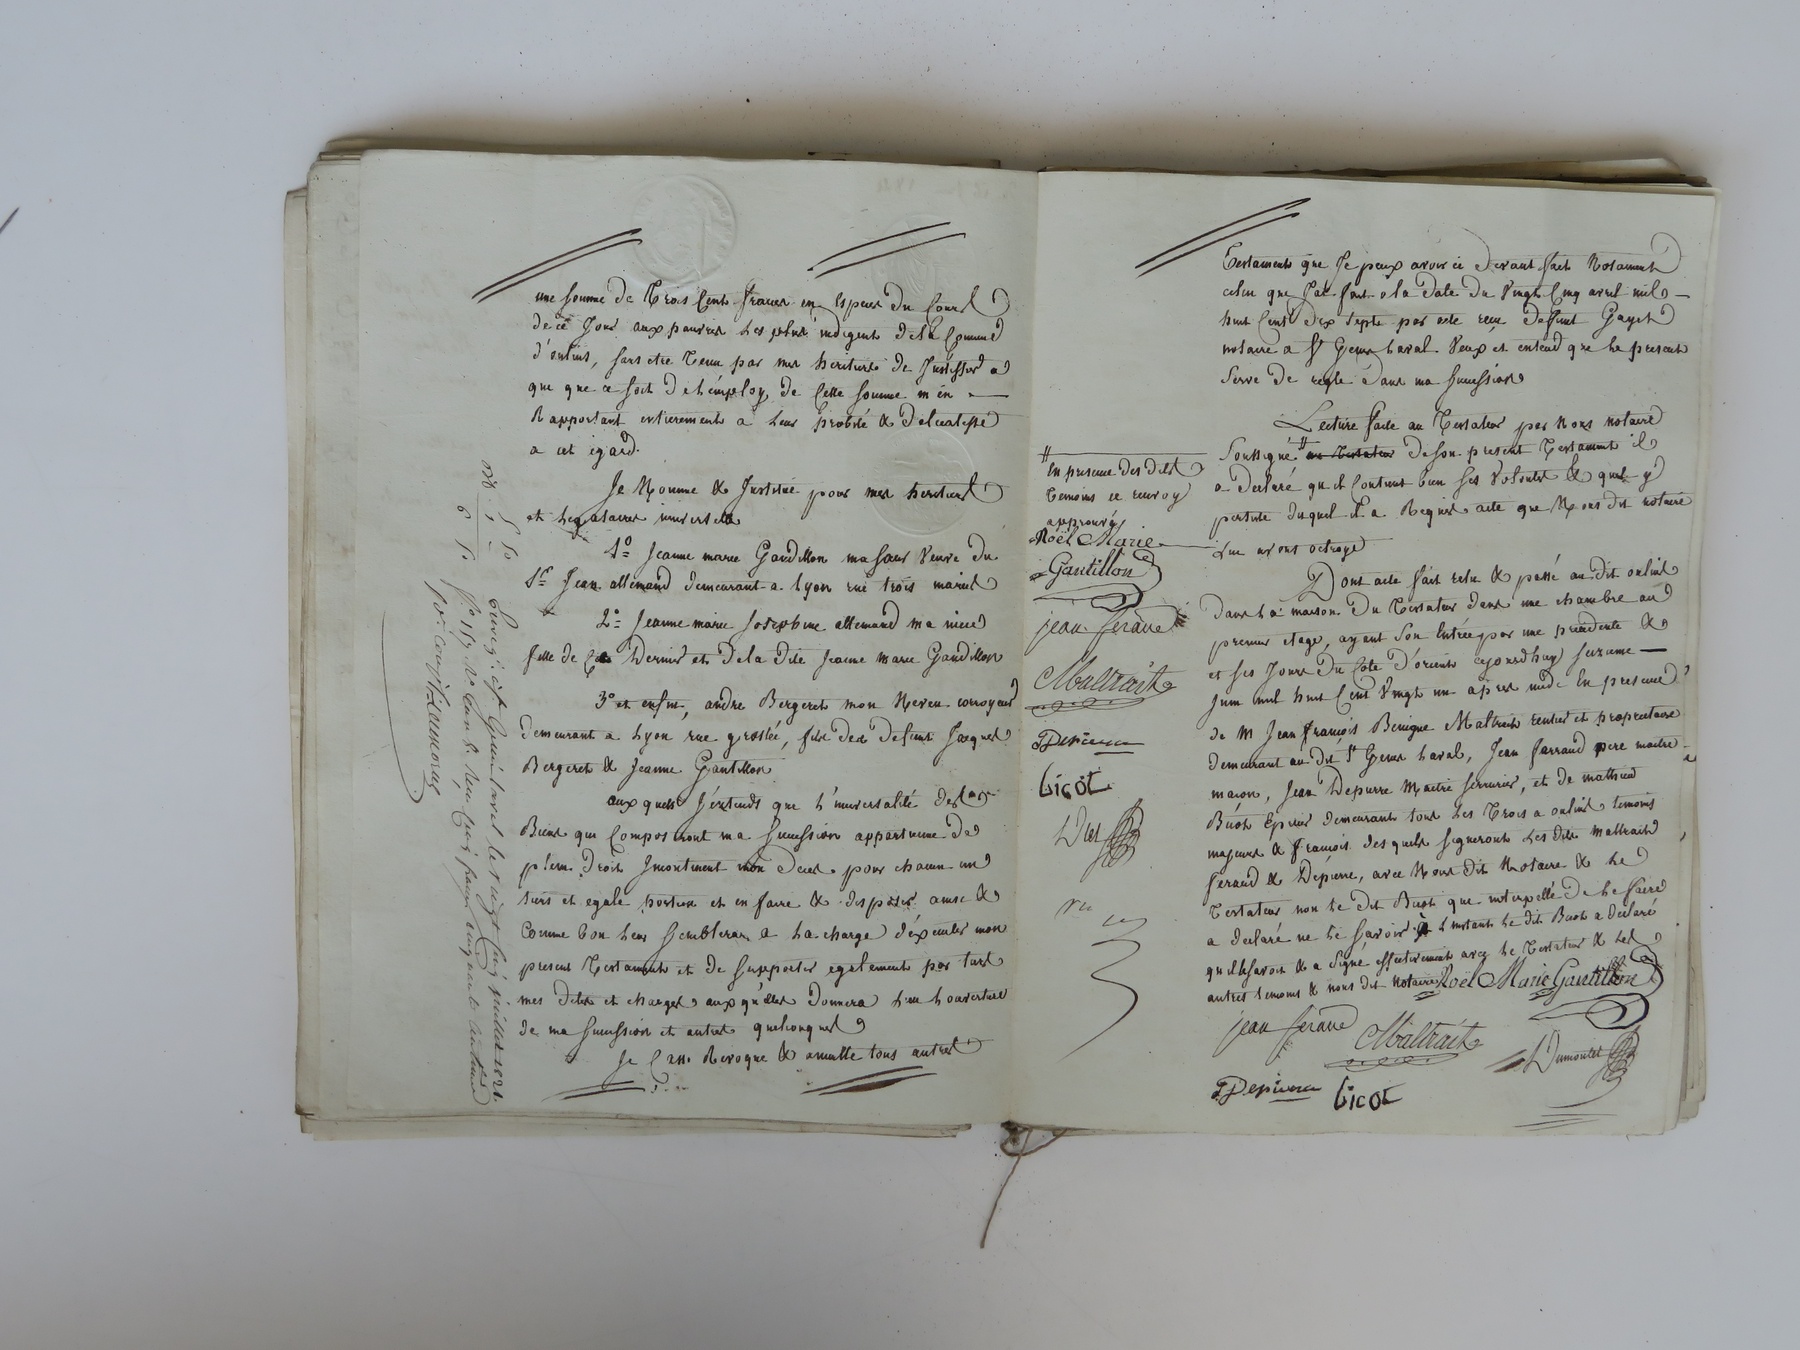 une somme de Trois Cent francs en Espèces du Cours
de ce Jour aux pauvres les plus indigent de la Commune
d'oulins, sans etre tenu par mes heritiers de Justiffier a
que que ce soit de l'émploy de Cette somme m'en
Rapportant entierement a leur probité & délicatesse
a cet égard.
Je Nomme & Institue pour mes heritiers
et Legataires universelle
1º Jeanne marie Gandillon ma sœur Veuve du
Sr. Jean allémand demeurant a Lyon rue trois maries
2º Jeanne marie Josephine allemand ma niece
fille de Ce Dernier et de la dite Jeanne Marie Gandillon
3º et enfin, andre Bergeret mon Neveu corroyeur
demeurant a Lyon rue grollée, fils des defunt Jacques
Bergeret & Jeanne Gantillon
auxquels J'éntends que L'universalité des
Biens qui Composeront ma Succession appartienne de
plein Droit Jmontinent mon décès pour chacun un
tiers et egale portion et en faire & disposer ainsi &
Comme bon leur semblera, a la charge d'éxécuter mon
present Testament et de supporter également par tiers
mes dettes et charges auxquelles donnera lieu l'ouverture
de ma succession et autres quelconques
Je Casse Revoque & annulle tous autres
Testaments que Je peux avoir ci devant fait Notament
celui que J'ai fait a la date du Vingt Cinq avril mil
huit Cent dix septs par acte reçu defunt Gayet
notaire a St Genis Laval Veux et entend que le present
serve de regle dans ma succession
Lecture faite au Testateur par Nous notaire
Soussigné # au Testateur de son present Testament il
a declaré qu'il Contient bien ses Volontés & qu'il y
persiste duquel il a Requis acte que Nous dit notaire
Lui avons octroyé
# En presence des dits
temoins ce renvoy
approuvé
Noël Marie
Gantillon
jean feraud
Maltrait
JDepierre
bicot
Dont acte fait relu & passé au dit oulins
dans la maison du Testateur dans une chambre au
premier etage, ayant son Entrée par une
et ses Jours du Cote d'orient aujourdhuy seizieme
Juin mil huit Cent Vingt un apres midi En presence
de M Jean françois Benigne Maltrait rentier et propriétaire
demeurant au dit St Genis Laval, Jean farraud pere maitre
maçon, Jean Depierre Maitre serrurier, et de mathieu
Buot Epicier demeurant tous les Trois a oulins temoins
majeurs & françois desquels signeront les dits Maltrait
feraud & Depierre, avec Nous dit Notaire & le
Testateur non le dit Buot que interpellé de le faire
a declaré ne le savoir à l'instant le dit Buot a declaré
qu'il le savoit & a signé effectivement avec le Testateur & les
autres temoins & nous dit notaire Noël Marie Gantillon
jean feraud
Maltrait
Dumoulet
JDepierre bicot